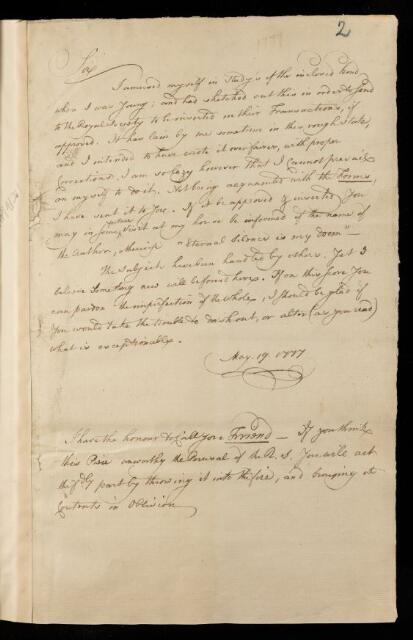 2
Sir
I amused myself in Studys of the inclosed kind
when I was Young; and had sketched out this in order to send
to the Royal Society to be inserted in their Transactions, if
approved. It has lain by me sometime in this rough State,
and I intended to have wrote it over fairer, with proper
Corrections. I am so lazy however that I cannot prevail
on myself to do it. Not being acquainted with the Forms,
I have sent it to You. If it be approved & inserted You
may in some future Visit at my house be informed of the name of
the Author, otherwise "eternal Silence is my doom"—
The Subject has been handled by others. Yet I
believe something new will be found here. If on this score You
can pardon the imperfection of the whole, I should be glad if
You would take the trouble to dash out, or alter (as you read)
what is exceptionable.
May. 19. 1777
I have the honour to Call you Friend — If you think
this Piece unworthy the Perusal of the R. S. You will act
the part by throwing it into the fire, and bringing its
Contents in Oblivion